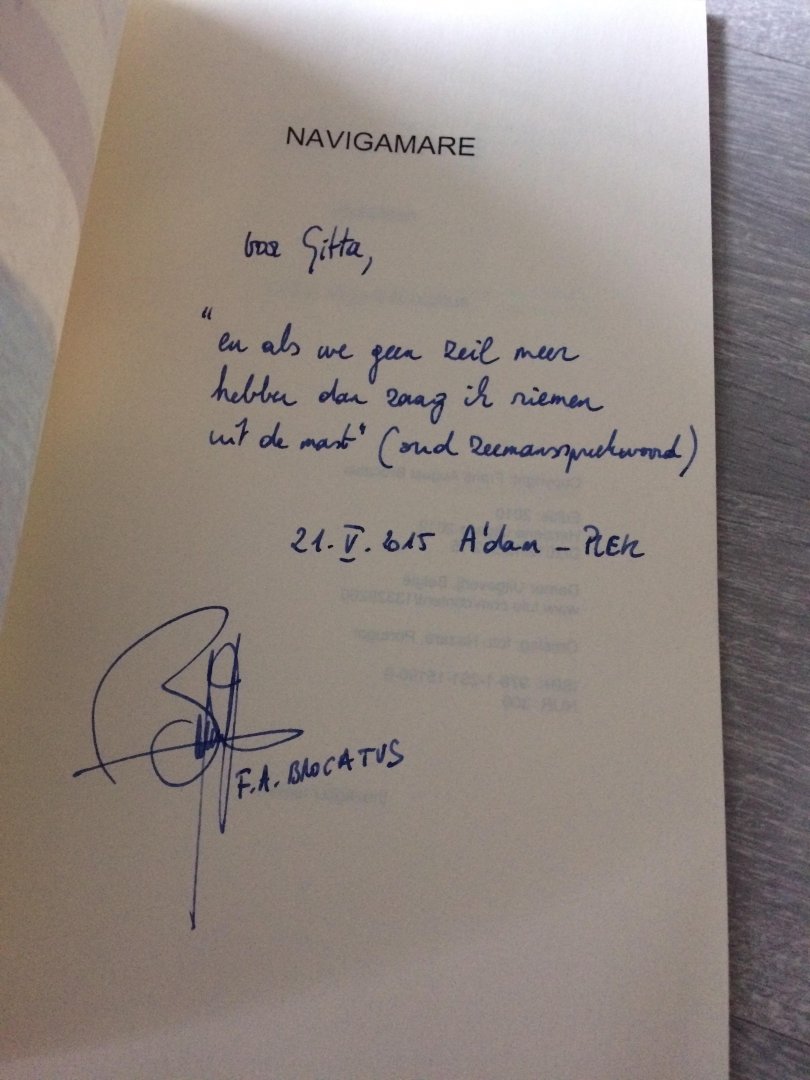 NAVIGAMARE
voor Gitta,
"en als we geen zeil meer
hebben dan zaag ik riemen
uit de mast" (oud zeemansspreekwoord)
21.V.2015 A'dam - PLEK
F.A. BROCATUS